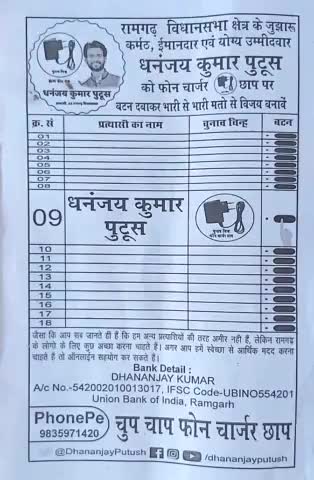 रामगढ़ विधानसभा क्षेत्र के जुझारू
कर्मठ, ईमानदार एवं योग्य उम्मीदवार
धनंजय कुमार पुटूस
को फोन चार्जर छाप पर
बटन दवाकर भारी से भारी मतो से विजय बनावें
चुनाव चिन्ह
धनंजय कुमार पुटूस
क्र. सं प्रत्याशी का नाम चुनाव चिन्ह बटन
01
02
03
04
05
06
07
08
09 धनंजय कुमार
पुटूस
चुनाव चिन्ह
फोन चार्जर छाप
10
11
12
13
14
15
16
17
18
जैसा कि आप सब जानते हीं हैं कि हम अन्य प्रत्याशियों की तरह अमीर नही हैं, लेकिन रामगढ़
के लोगो के लिए कुछ अच्छा करना चाहते हैं। अगर आप हमें स्वेच्छा से आर्थिक मदद करना
चाहते हैं तो ऑनलाईन सहयोग कर सकते हैं।
Bank Detail :
DHANANJAY KUMAR
A/c No.-542002010013017, IFSC Code-UBINO554201
Union Bank of India, Ramgarh
PhonePe
9835971420
चुप चाप फोन चार्जर छाप
@DhananjayPutush /dhananjayputush